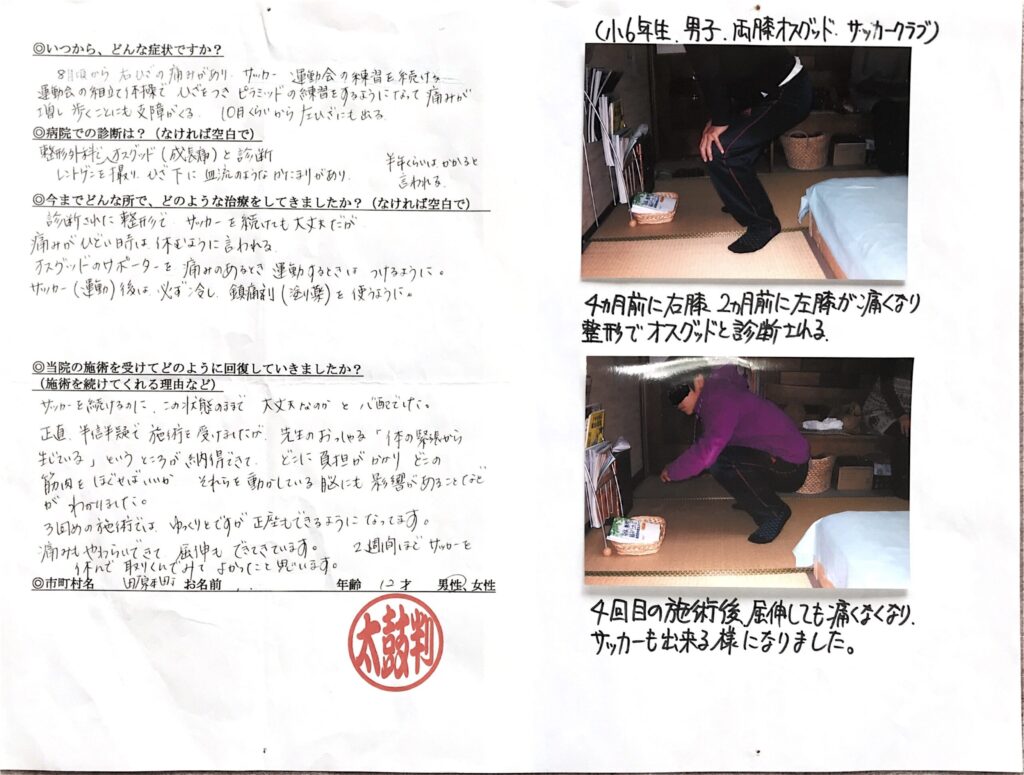 ◎いつから、どんな症状ですか？
8月頃から 右ひざの痛みがあり、サッカー 運動会の練習を続ける
運動会の組立て体操で ひざをつき ピラミッドの練習をするようになって 痛みが
増し 歩くことにも支障がくる。 10月くらいから 左ひざにも出る。
◎病院での診断は？（なければ空白で）
整形外科 オスグッド（成長痛）と診断
半年くらいは かかると
レントゲンを撮り、ひざ下に 血流のような かたまりがあり、
言われる。
◎今までどんな所で、どのような治療をしてきましたか？（なければ空白で）
診断された 整形で サッカーを続けても大丈夫だが
痛みがひどい時は 休むように言われる。
オスグッドのサポーターを 痛みのあるとき 運動するときは つけるように。
サッカー（運動）後は 必ず冷し、鎮痛剤（塗り薬）を 使うように。
◎当院の施術を受けてどのように回復していきましたか？
（施術を続けてくれる理由など）
サッカーを続けるのに、この状態のままで 大丈夫なのか と 心配でした。
正直、半信半疑で 施術を受けましたが、先生のおっしゃる「体の緊張から
生じている」というところが納得できて、どこに負担がかかり どこの
筋肉をほぐせばいいか それらを動かしている脳にも 影響があることなど
が わかりました。
3回めの施術では、ゆっくりとですが 正座もできるようになってます。
痛みもやわらいできて 屈伸も できてきています。 2週間ほどサッカーを
休んで 取りくんでみて よかったこと 思います。
◎市町村名 田原本町 お名前 年齢 12才 男性、女性
太鼓判
（小6年生、男子、両膝オスグッド、サッカークラブ）
4ヵ月前に右膝、2ヵ月前に左膝が痛くなり
整形でオスグッドと診断される。
4回目の施術後、屈伸しても痛くなくなり、
サッカーも出来る様になりました。